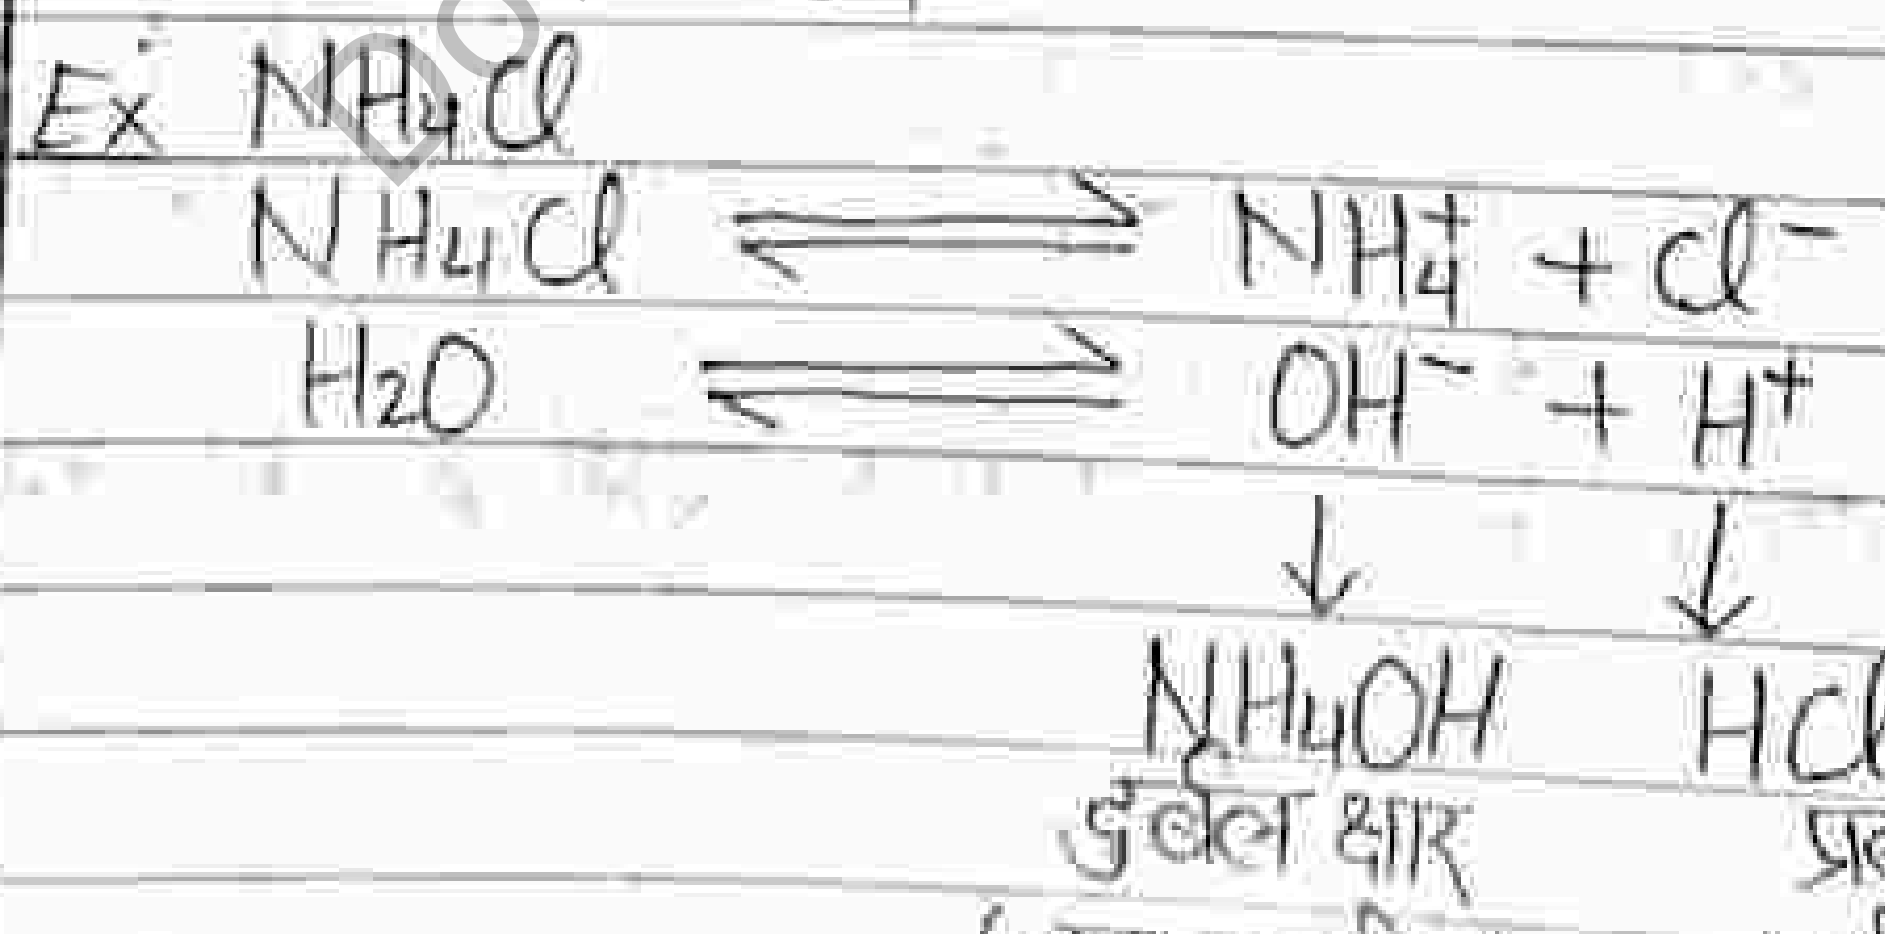 Ex NH₄Cl
NH₄Cl ⇌ NH₄⁺ + Cl⁻
H₂O ⇌ OH⁻ + H⁺
↓ ↓
NH₄OH HCl
दुर्बल क्षार